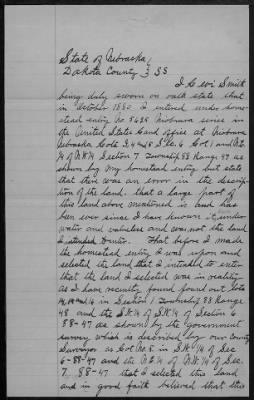 State of Nebraska
Dakota County } SS
I Levi Smith
being duly sworn on oath state that
in October 1880 I entered under home
stead entry No 5428 Niobrara series in
the United States Land office at Niobrara
Nebraska Lots 3, 4 Sec 6 Lot 1 and N.E.
1/4 of N.W 1/4 Section 7 Township 88 Range 47 as
shown by my homestead entry but state
that there was an error in the descrip
tion of the land. that a large part of
this land above mentioned is and has
been ever since I have known it, under
water and valueless and was not the land
I intended to enter. That before I made
the homestead entry I was upon and
selected the land that I intended to enter
that the land I selected was in reality
as I have recently found out lots
in Section 1 Township 88 Range
48 and the S.W 1/4 of S.W. 1/4 of Section 6
88-47 as shown by the government
survey which is described by our County
Surveyor as Lot No 5 in S.W 1/4 of Sec
6-88-47 and the N.W. 1/4 of N.W 1/4 of Sec.
7. 88-47 that I selected this land
and in good faith believed that this